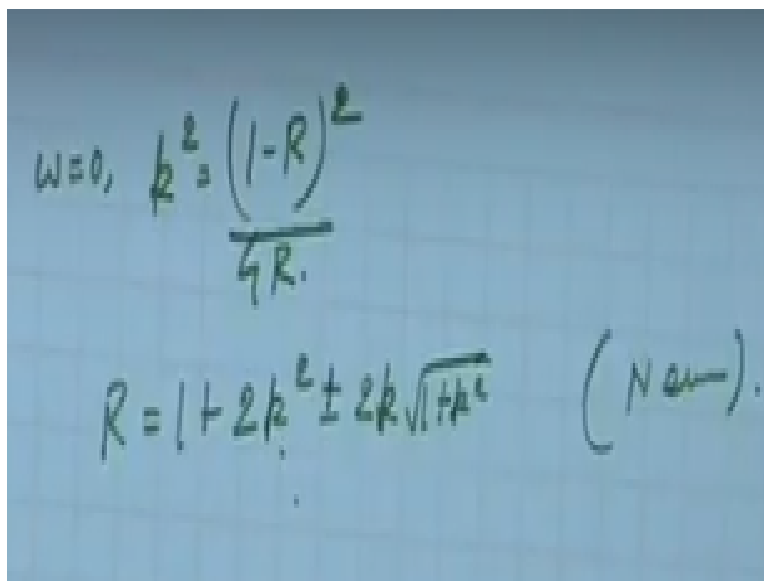 ω=0, k² = (1-R)² / 4R.
R = 1 + 2k² ± 2k√(1+k²)